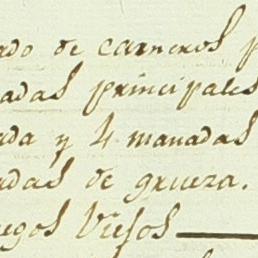 ado de carneros p
adas principales
ada y 4 manadas
adas de gruera.
egos Viejos